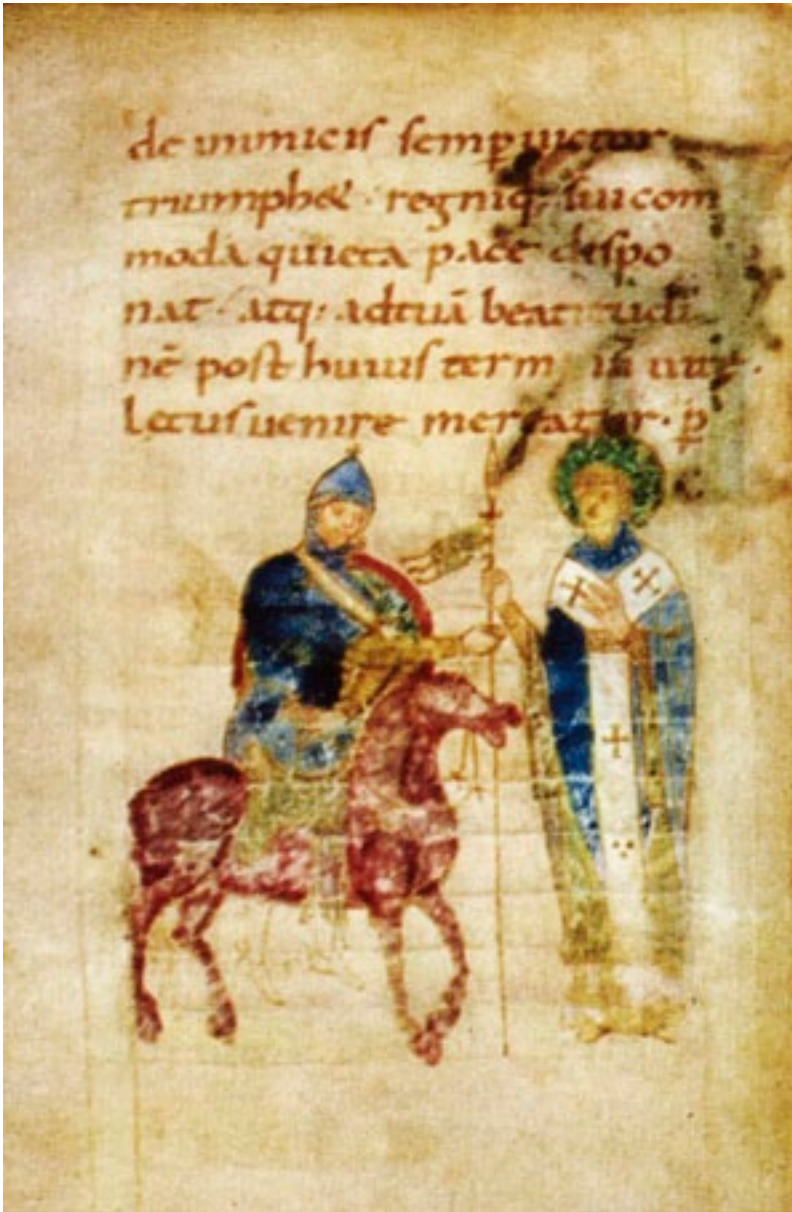 de inimicis semp̱ uictor
triumphet · regniq; sui com
moda quieta pacẽ dispo
nat · atq; ad tuã beatitudi
nẽ post huius term uitę ·
letus uenire mereatur · p̱